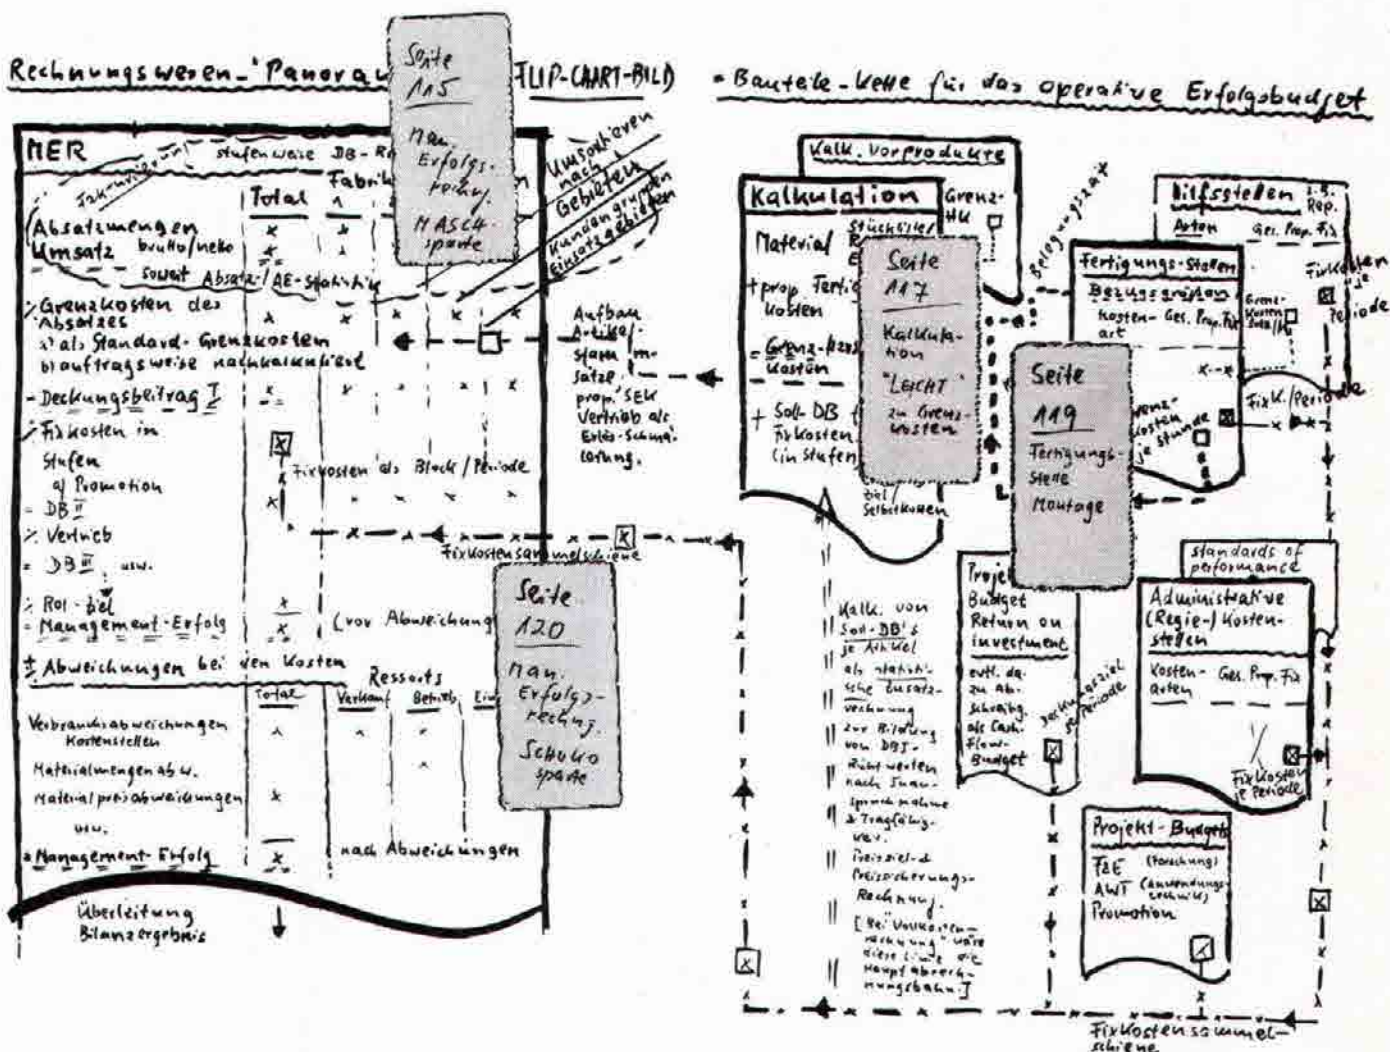 Rechnungswesen-"Panora
FLIP-CHART-BILD)
= Bauteile-Kette für das operative Erfolgsbudget
Seite
115
Man.
Erfolgs-
rechng.
MASCH-
sparte
MER
stufenweise DB-R
Fakturierung
Fabrik
Total
Umsortieren
nach
Gebieten
Kundengruppen
Einsatzgebieten
Absatzmengen
Umsatz brutto/netto
soweit Absatz-/AE-Statistik
./. Grenzkosten des
Absatzes
a) als Standard-Grenzkosten
b) auftragsweise nachkalkuliert
= Deckungsbeitrag I
./. Fixkosten in
Stufen
a) Promotion
= DB II
./. Vertrieb
= DB III usw.
./. RoI-Ziel
= Management-Erfolg
(vor Abweichung
Fixkosten als Block/Periode
Fixkostensammelschiene
± Abweichungen bei den Kosten
Ressorts
Total Verkauf Betrieb
Verbrauchsabweichungen
Kostenstellen
Materialmengenabw.
Materialpreisabweichungen
usw.
= Management-Erfolg
nach Abweichungen
Überleitung
Bilanzergebnis
Seite
120
Man.
Erfolgs-
rechng.
SCHUKO
sparte
Aufbau
Artikel-
stamm
sätze,
prop. SEK
Vertrieb als
Erlös-Schmä-
lerung.
Kalk. Vorprodukte
Grenz-
HK
Kalkulation
Material
+ prop. Fertig
kosten
= Grenz-Herst
kosten
+ Soll-DB
Fixkosten
(in Stufen)
Ziel/
Selbstkosten
Seite
117
Kalkula-
tion
"LEICHT"
zu Grenz-
kosten
Belegungszeit
Hilfsstellen
z.B.
Rep.
Arten Ges. Prop. Fix
Fixkosten
je
Periode
Fertigungs-Stellen
Bezugsgrößen
Kosten- Ges. Prop. Fix
art
Grenz-
Kosten
Satz/
FixK./Periode
Grenz-
kosten
je Stunde
Seite
119
Fertigungs-
stelle
Montage
Kalk. von
Soll-DB's
je Artikel
als statisti-
sche Zusatz-
rechnung
zur Bildung
von DBI-
Richtwerten
nach Inan-
spruchnahme
& Tragfähig-
Preisziel-&
Preissicherungs-
Rechnung.
[Bei "Vollkosten-
rechnung" wäre
diese Linie die
Hauptabrech-
nungsbahn.]
Projek
Budget
Return on
investment
evtl. da-
zu Ab-
schreibg.
als Cash-
Flow-
Budget
Deckungsziel
je Periode
standards of
performance
Administrative
(Regie-) Kosten-
stellen
Kosten- Ges. Prop. Fix
arten
Fixkosten
je Periode
Projekt-Budgets
F&E (Forschung)
AWT (Anwendungs-
technik)
Promotion
Fixkostensammel-
schiene